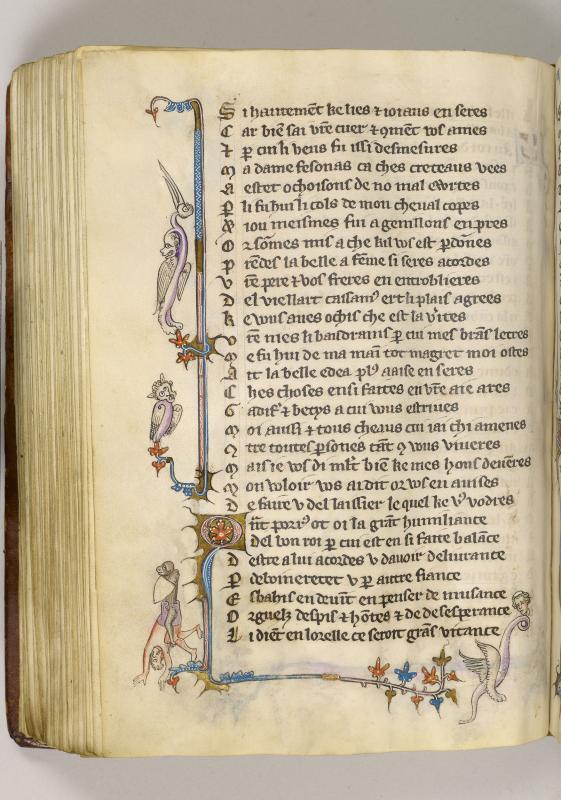 S i hautement ke lies & ioiaus en seres
C ar bien sai vr̄e cuer & ꝯment ws ames
& ꝑ cui li vens fu issi desmesures
M a dame fesonas ca ches creteaus vees
A estet ochoisons de no mal
P li fu hui li cols de mon cheual copes
& iou meismes fui a genillons en pres
O r somes mis a che kil ws est ꝑdones
P rendes la belle a feme si seres acordes
V r̄e pere & vos freres en
D el viellart cassamꝰ ert li plais agrees
K e wus aues ochis che est la vites
V r̄e mes li baudrains ꝑ cui mes brans letres
M e fu hui de ma main tot magret moi ostes
A it la belle edea plꝰ aaise en seres
C hes choses ensi faites en vr̄e aie ares
G adif & betys a cui wus estriues
M oi aussi & tous cheaus cui iai chi amenes
N tre toutes ꝑsones tant ꝯ wus viueres
M ais ie ws di mlt bien ke mes hons deueres
M on voloir ws ai dit or ws en auises
D e faire v del laissier le quel ke vꝰ vodres
Q nt porꝰ ot oi la grant humiliance
del bon roi ꝑ cui est en si faite balance
D estre a lui acordes v dauoir deliurance
P de v ꝑ autre fiance
E sbahis en deuint en penser de nuisance
O rguelz despis & hontes & de desesperance
L i dient en lorelle ce seroit grans vitance